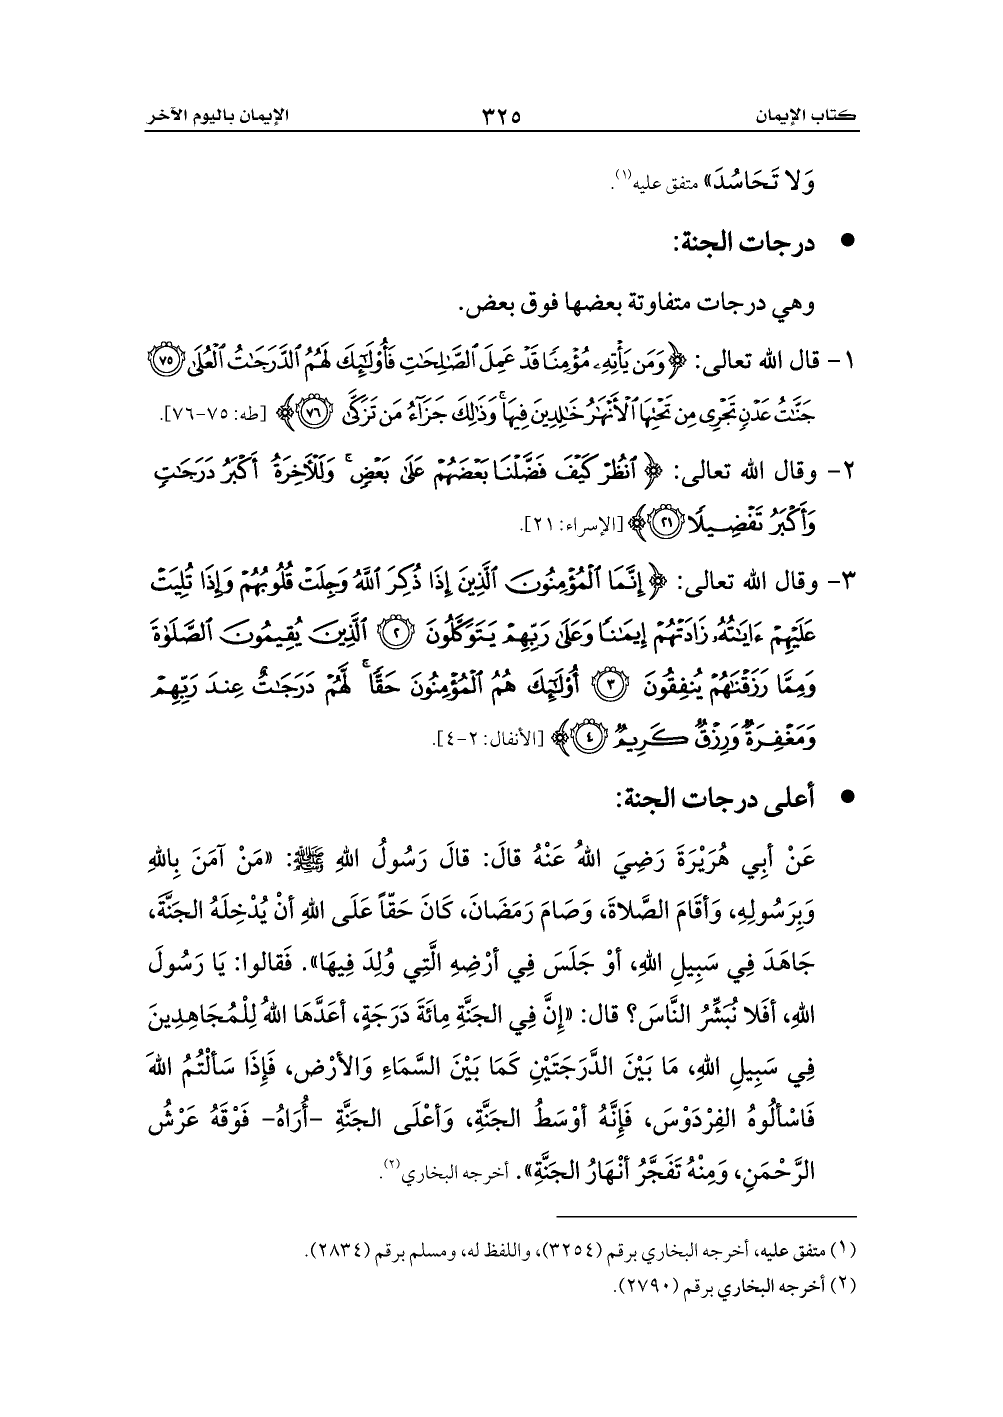 كتاب الإيمان ٣٢٥ الإيمان باليوم الآخر
وَلا تَحَاسُدَ» متفق عليه(١).
● درجات الجنة:
وهي درجات متفاوتة بعضها فوق بعض.
١- قال الله تعالى: ﴿وَمَن يَأْتِهِۦ مُؤْمِنًا قَدْ عَمِلَ ٱلصَّٰلِحَٰتِ فَأُوْلَٰٓئِكَ لَهُمُ ٱلدَّرَجَٰتُ ٱلْعُلَىٰ ۝٧٥
جَنَّٰتُ عَدْنٍ تَجْرِى مِن تَحْتِهَا ٱلْأَنْهَٰرُ خَٰلِدِينَ فِيهَا ۚ وَذَٰلِكَ جَزَآءُ مَن تَزَكَّىٰ ۝٧٦﴾ [طه: ٧٥-٧٦].
٢- وقال الله تعالى: ﴿ٱنظُرْ كَيْفَ فَضَّلْنَا بَعْضَهُمْ عَلَىٰ بَعْضٍ ۚ وَلَلْءَاخِرَةُ أَكْبَرُ دَرَجَٰتٍ
وَأَكْبَرُ تَفْضِيلًا ۝٢١﴾ [الإسراء: ٢١].
٣- وقال الله تعالى: ﴿إِنَّمَا ٱلْمُؤْمِنُونَ ٱلَّذِينَ إِذَا ذُكِرَ ٱللَّهُ وَجِلَتْ قُلُوبُهُمْ وَإِذَا تُلِيَتْ
عَلَيْهِمْ ءَايَٰتُهُۥ زَادَتْهُمْ إِيمَٰنًا وَعَلَىٰ رَبِّهِمْ يَتَوَكَّلُونَ ۝٢ ٱلَّذِينَ يُقِيمُونَ ٱلصَّلَوٰةَ
وَمِمَّا رَزَقْنَٰهُمْ يُنفِقُونَ ۝٣ أُوْلَٰٓئِكَ هُمُ ٱلْمُؤْمِنُونَ حَقًّا ۚ لَّهُمْ دَرَجَٰتٌ عِندَ رَبِّهِمْ
وَمَغْفِرَةٌ وَرِزْقٌ كَرِيمٌ ۝٤﴾ [الأنفال: ٢-٤].
● أعلى درجات الجنة:
عَنْ أبِي هُرَيْرَةَ رَضِيَ اللهُ عَنْهُ قالَ: قالَ رَسُولُ اللهِ ﷺ: «مَنْ آمَنَ بِاللهِ
وَبِرَسُولِهِ، وَأقَامَ الصَّلاةَ، وَصَامَ رَمَضَانَ، كَانَ حَقّاً عَلَى اللهِ أنْ يُدْخِلَهُ الجَنَّةَ،
جَاهَدَ فِي سَبِيلِ اللهِ، أوْ جَلَسَ فِي أرْضِهِ الَّتِي وُلِدَ فِيهَا». فَقالوا: يَا رَسُولَ
اللهِ، أفَلا نُبَشِّرُ النَّاسَ؟ قال: «إنَّ فِي الجَنَّةِ مِائَةَ دَرَجَةٍ، أعَدَّهَا اللهُ لِلْمُجَاهِدِينَ
فِي سَبِيلِ اللهِ، مَا بَيْنَ الدَّرَجَتَيْنِ كَمَا بَيْنَ السَّمَاءِ وَالأرْضِ، فَإذَا سَألْتُمُ اللهَ
فَاسْألُوهُ الفِرْدَوْسَ، فَإنَّهُ أوْسَطُ الجَنَّةِ، وَأعْلَى الجَنَّةِ -أُرَاهُ- فَوْقَهُ عَرْشُ
الرَّحْمَنِ، وَمِنْهُ تَفَجَّرُ أنْهَارُ الجَنَّةِ». أخرجه البخاري(٢).
(١) متفق عليه، أخرجه البخاري برقم (٣٢٥٤)، واللفظ له، ومسلم برقم (٢٨٣٤).
(٢) أخرجه البخاري برقم (٢٧٩٠).